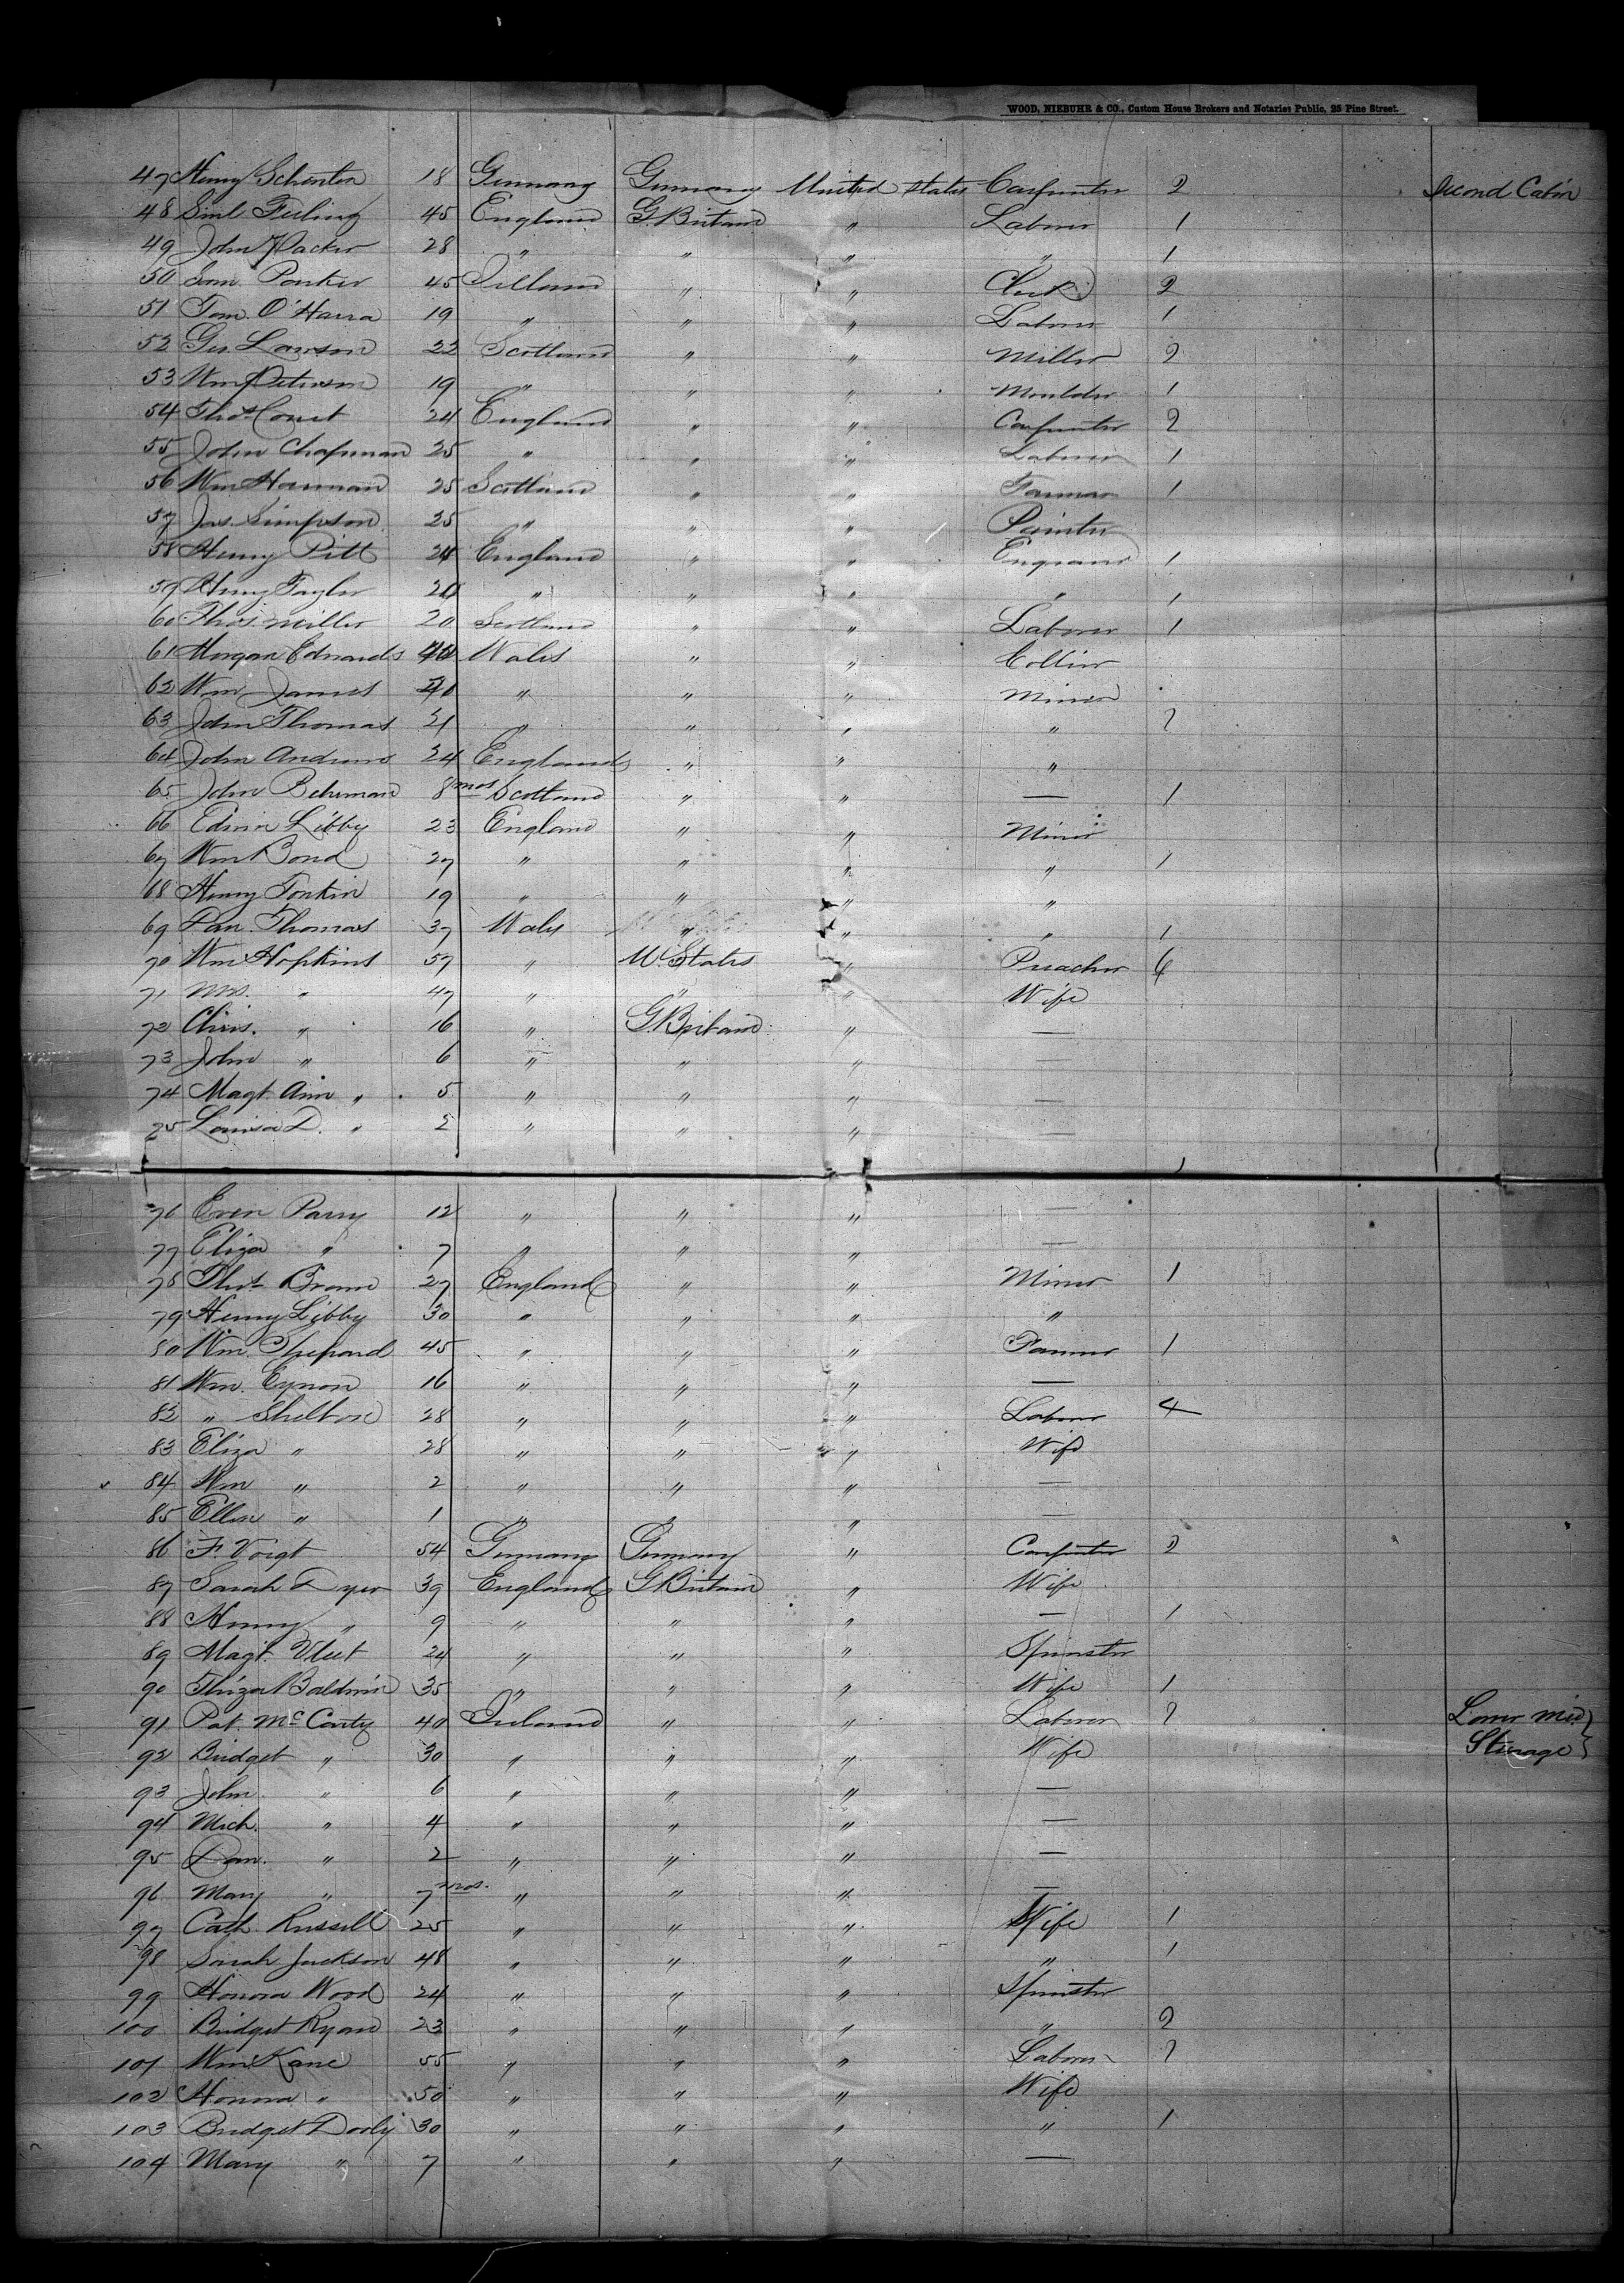 WOOD, NIEBUHR & CO., Custom House Brokers and Notaries Public, 25 Pine Street.
47 Henry 18 Germany Germany United States Carpenter 2 Second Cabin
48 Saml 45 England G. Britain " Laborer 1
49 John Packer 28 " " " " 1
50 Sam. Ponker 45 Ireland " " Clerk 2
51 Tom. O'Harra 19 " " " Laborer 1
52 Geo. Lawson 22 Scotland " " Miller 2
53 Wm Peterson 19 " " " Moulder 1
54 Thos Court 24 England " " Carpenter 2
55 John Chapman 25 " " " Laborer 1
56 Wm Hannan 25 Scotland " " Farmer 1
57 Jas. Simpson 25 " " " Painter
58 Henry Pitt 24 England " " 1
59 Henry Taylor " " " " 1
60 Thos. Miller 20 Scotland " " Laborer 1
61 Morgan Edwards 40 Wales " " Collier
62 Wm James 40 " " " Miner
63 John Thomas 21 " " " " 2
64 John Andrews 24 England " " "
65 John 8 mos Scotland " " — 1
66 Edwin Libby 23 England " " Miner
67 Wm Bond 27 " " " " 1
68 Henry Tonkin 19 " " " "
69 Dan. Thomas 37 Wales " " " 1
70 Wm Hopkins 57 " U. States " Preacher 6
71 Mrs. " 47 " " " Wife
72 Chris. " 16 " G. Britain " —
73 John " 6 " " " —
74 Magt Ann " 5 " " " —
75 Louisa D. " 2 " " " —
76 Even Parry 12 " " " —
77 Eliza " 7 " " " —
78 Thos Brown 27 England " " Miner 1
79 Henry Libby 30 " " " "
80 Wm. Shepard 45 " " " Farmer 1
81 Wm. Eynon 16 " " " —
82 " Shelton 28 " " " Laborer 4
83 Eliza " 28 " " " Wife
84 Wm " 2 " " " —
85 Ellen " 1 " " " —
86 F. Voigt 54 Germany Germany " Carpenter 2
87 Sarah Dyer 39 England G Britain " Wife
88 Henry " 9 " " " — 1
89 Magt. Vleet 24 " " " Spinster
90 Thirza Baldwin 35 " " " Wife 1
91 Pat. McCarty 40 Ireland " " Laborer 2 Lower Mid
92 Bridget " 30 " " " Wife Sterage
93 John " 6 " " " —
94 Mich. " 4 " " " —
95 Dan. " 2 " " " —
96 Mary " 7 mos. " " " —
97 Cath. Russell 25 " " " Wife 1
98 Sarah Jackson 48 " " " " 1
99 Honora Wood 24 " " " Spinster
100 Bridget Ryan 23 " " " " 2
101 Wm Kane 55 " " " Laborer 2
102 Honora " 50 " " " Wife
103 Bridget Dooly 30 " " " " 1
104 Mary " 7 " " " —